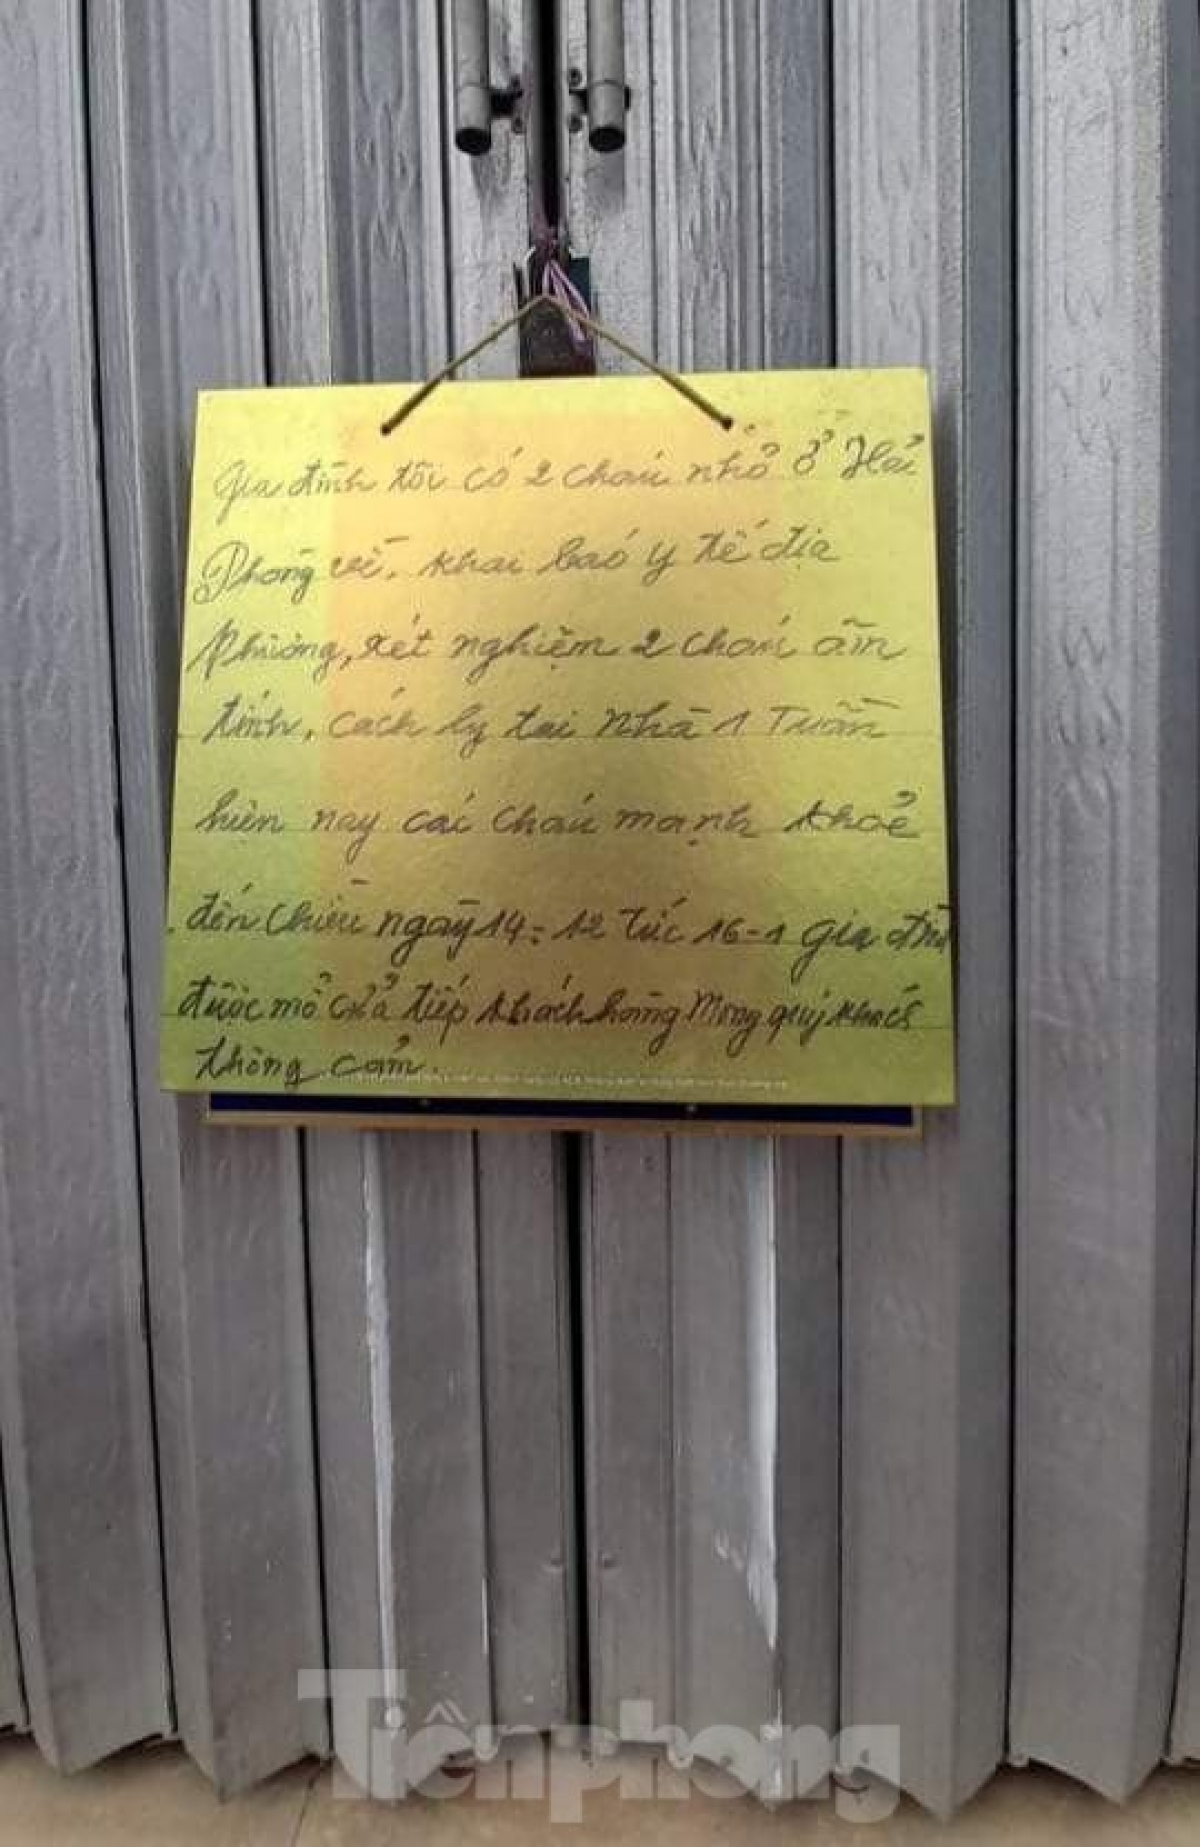 Gia đình tôi có 2 cháu nhỏ ở Hải
Phòng về, khai báo y tế địa
phương, xét nghiệm 2 cháu âm
tính, cách ly tại nhà 1 Tuần
hiện nay các cháu mạnh khoẻ
đến chiều ngày 14-12 tức 16-1 gia đìn
được mở cửa tiếp khách hàng Mong quý khách
thông cảm.
Tiền phong